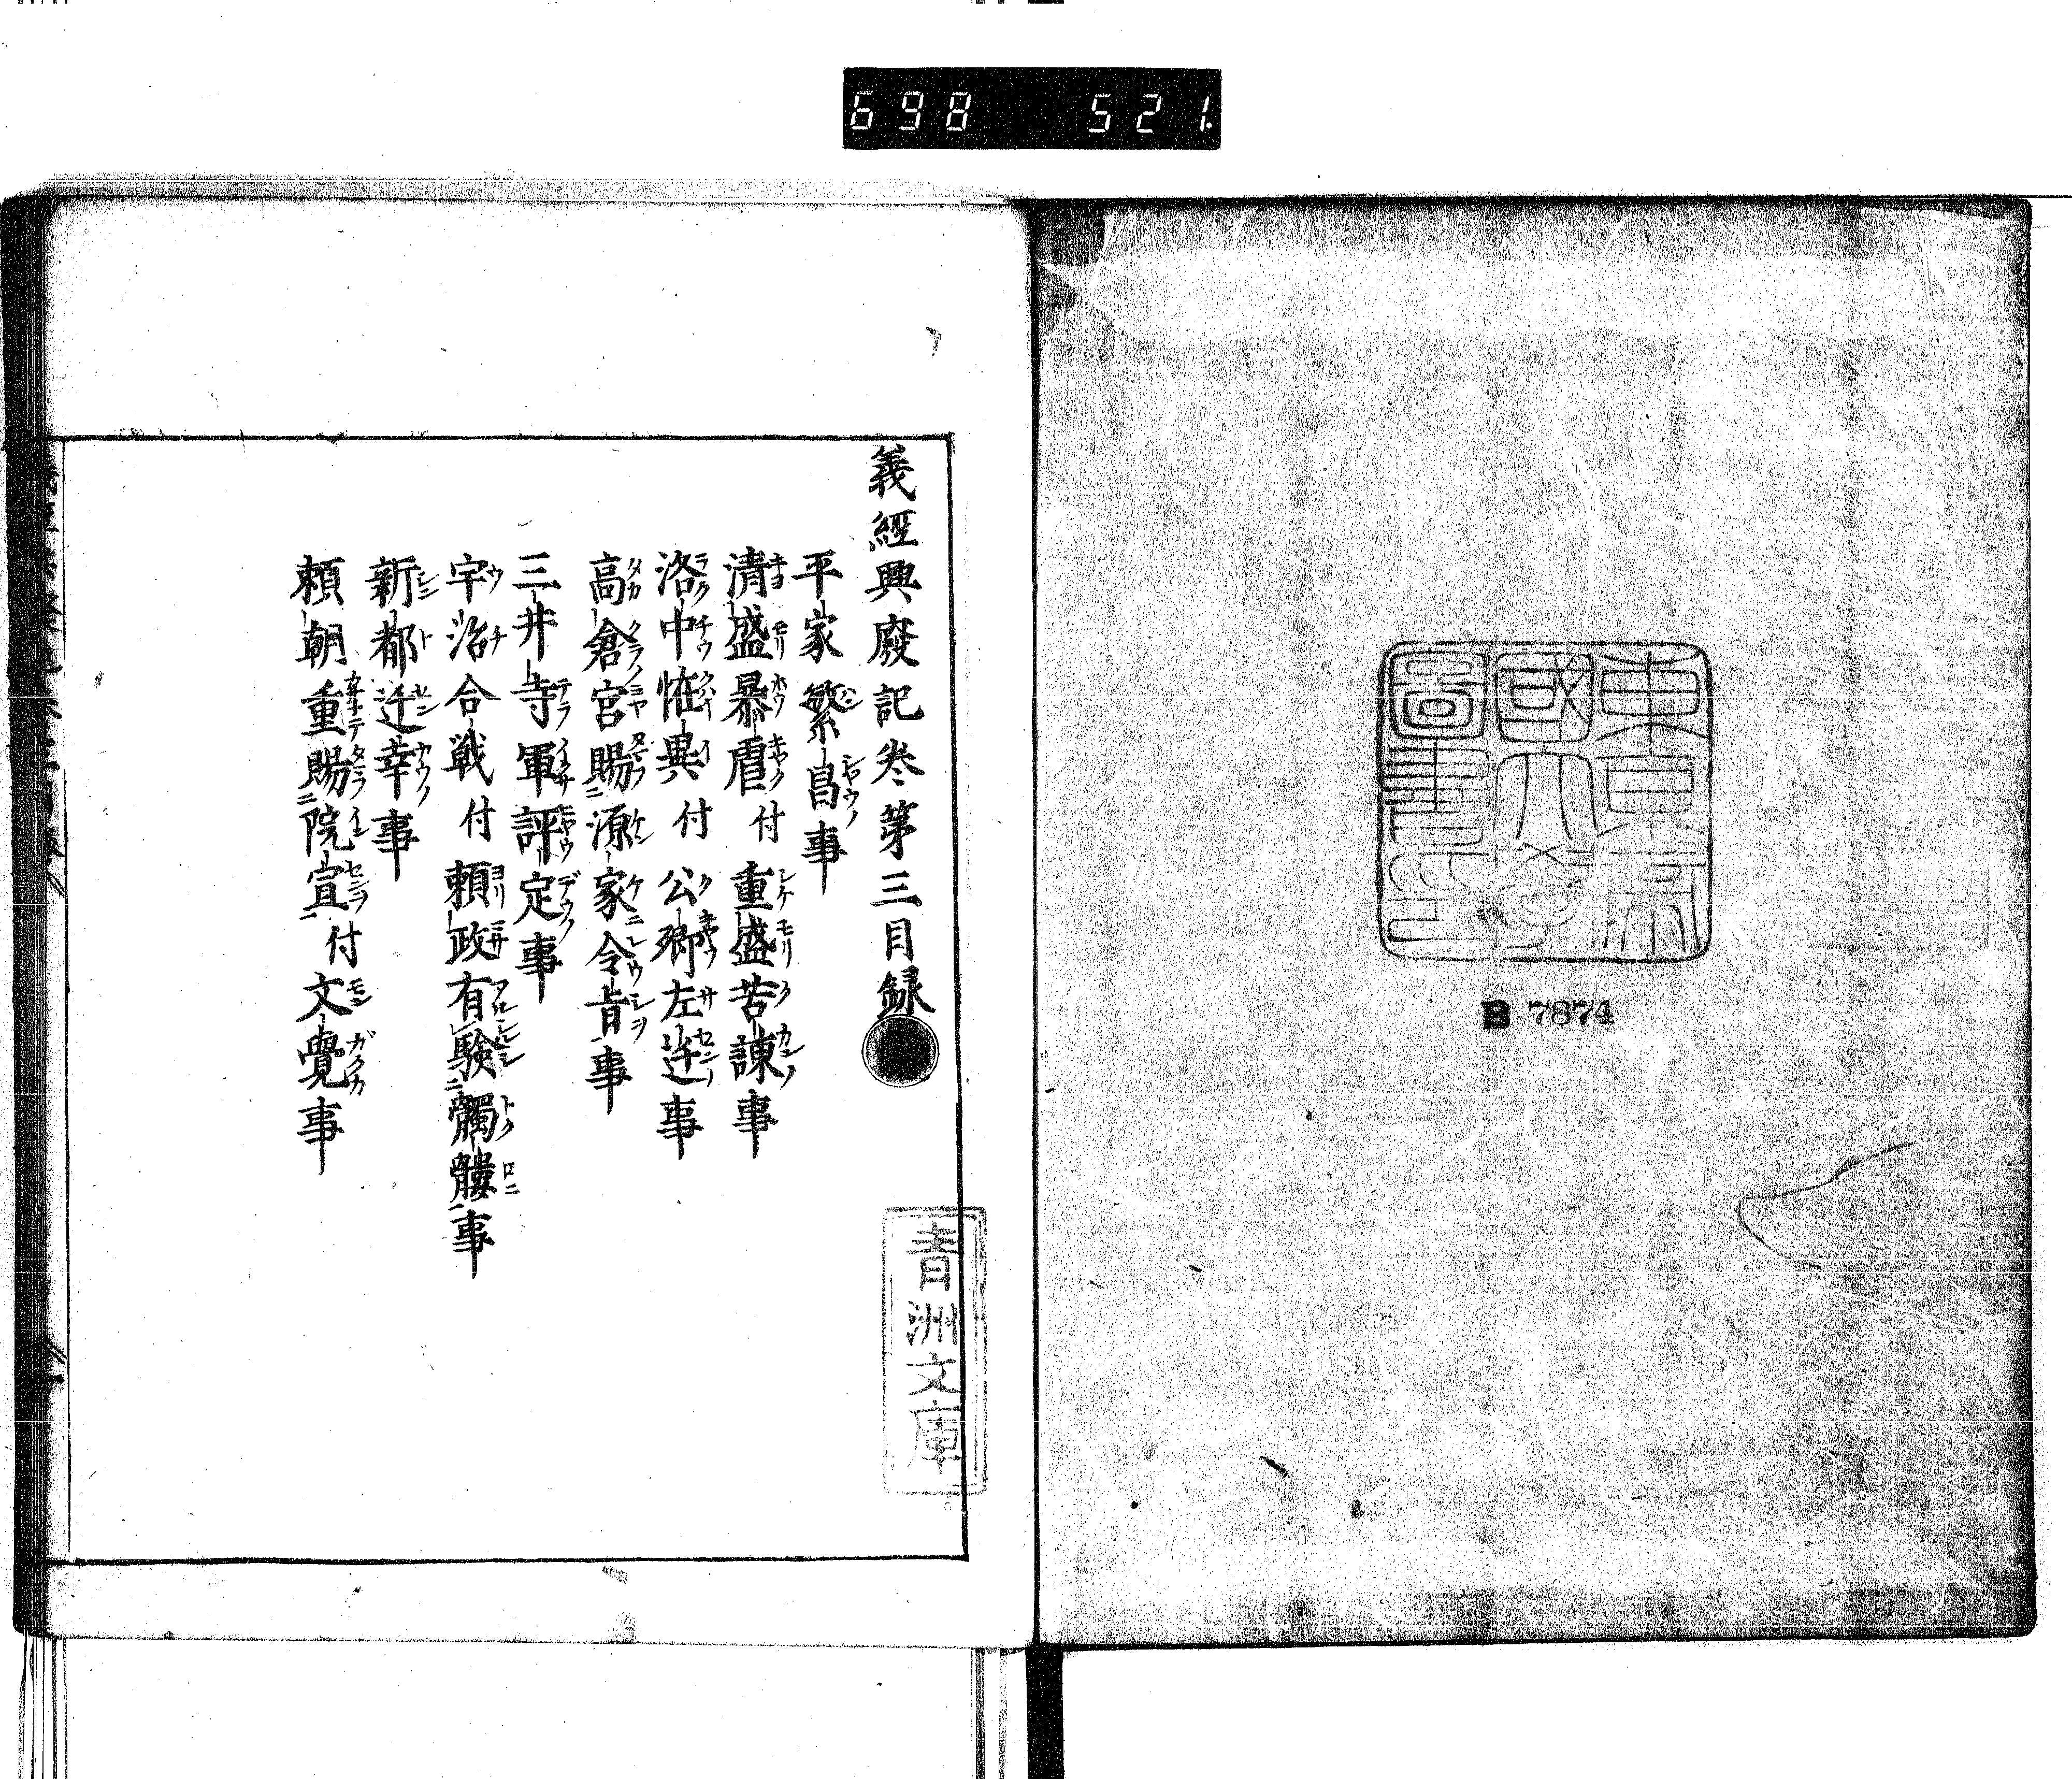 698 521
東京帝國大學圖書印
B 7874
義經興廢記巻第三目録
平家繁昌事
清盛暴虐付重盛苦諫事
洛中恠異付公卿左迁事
高倉宮賜源家令旨事
三井寺軍評定事
宇治合戦付頼政有験髑髏事
新都迁幸事
頼朝重賜院宣付文覺事
青洲文庫